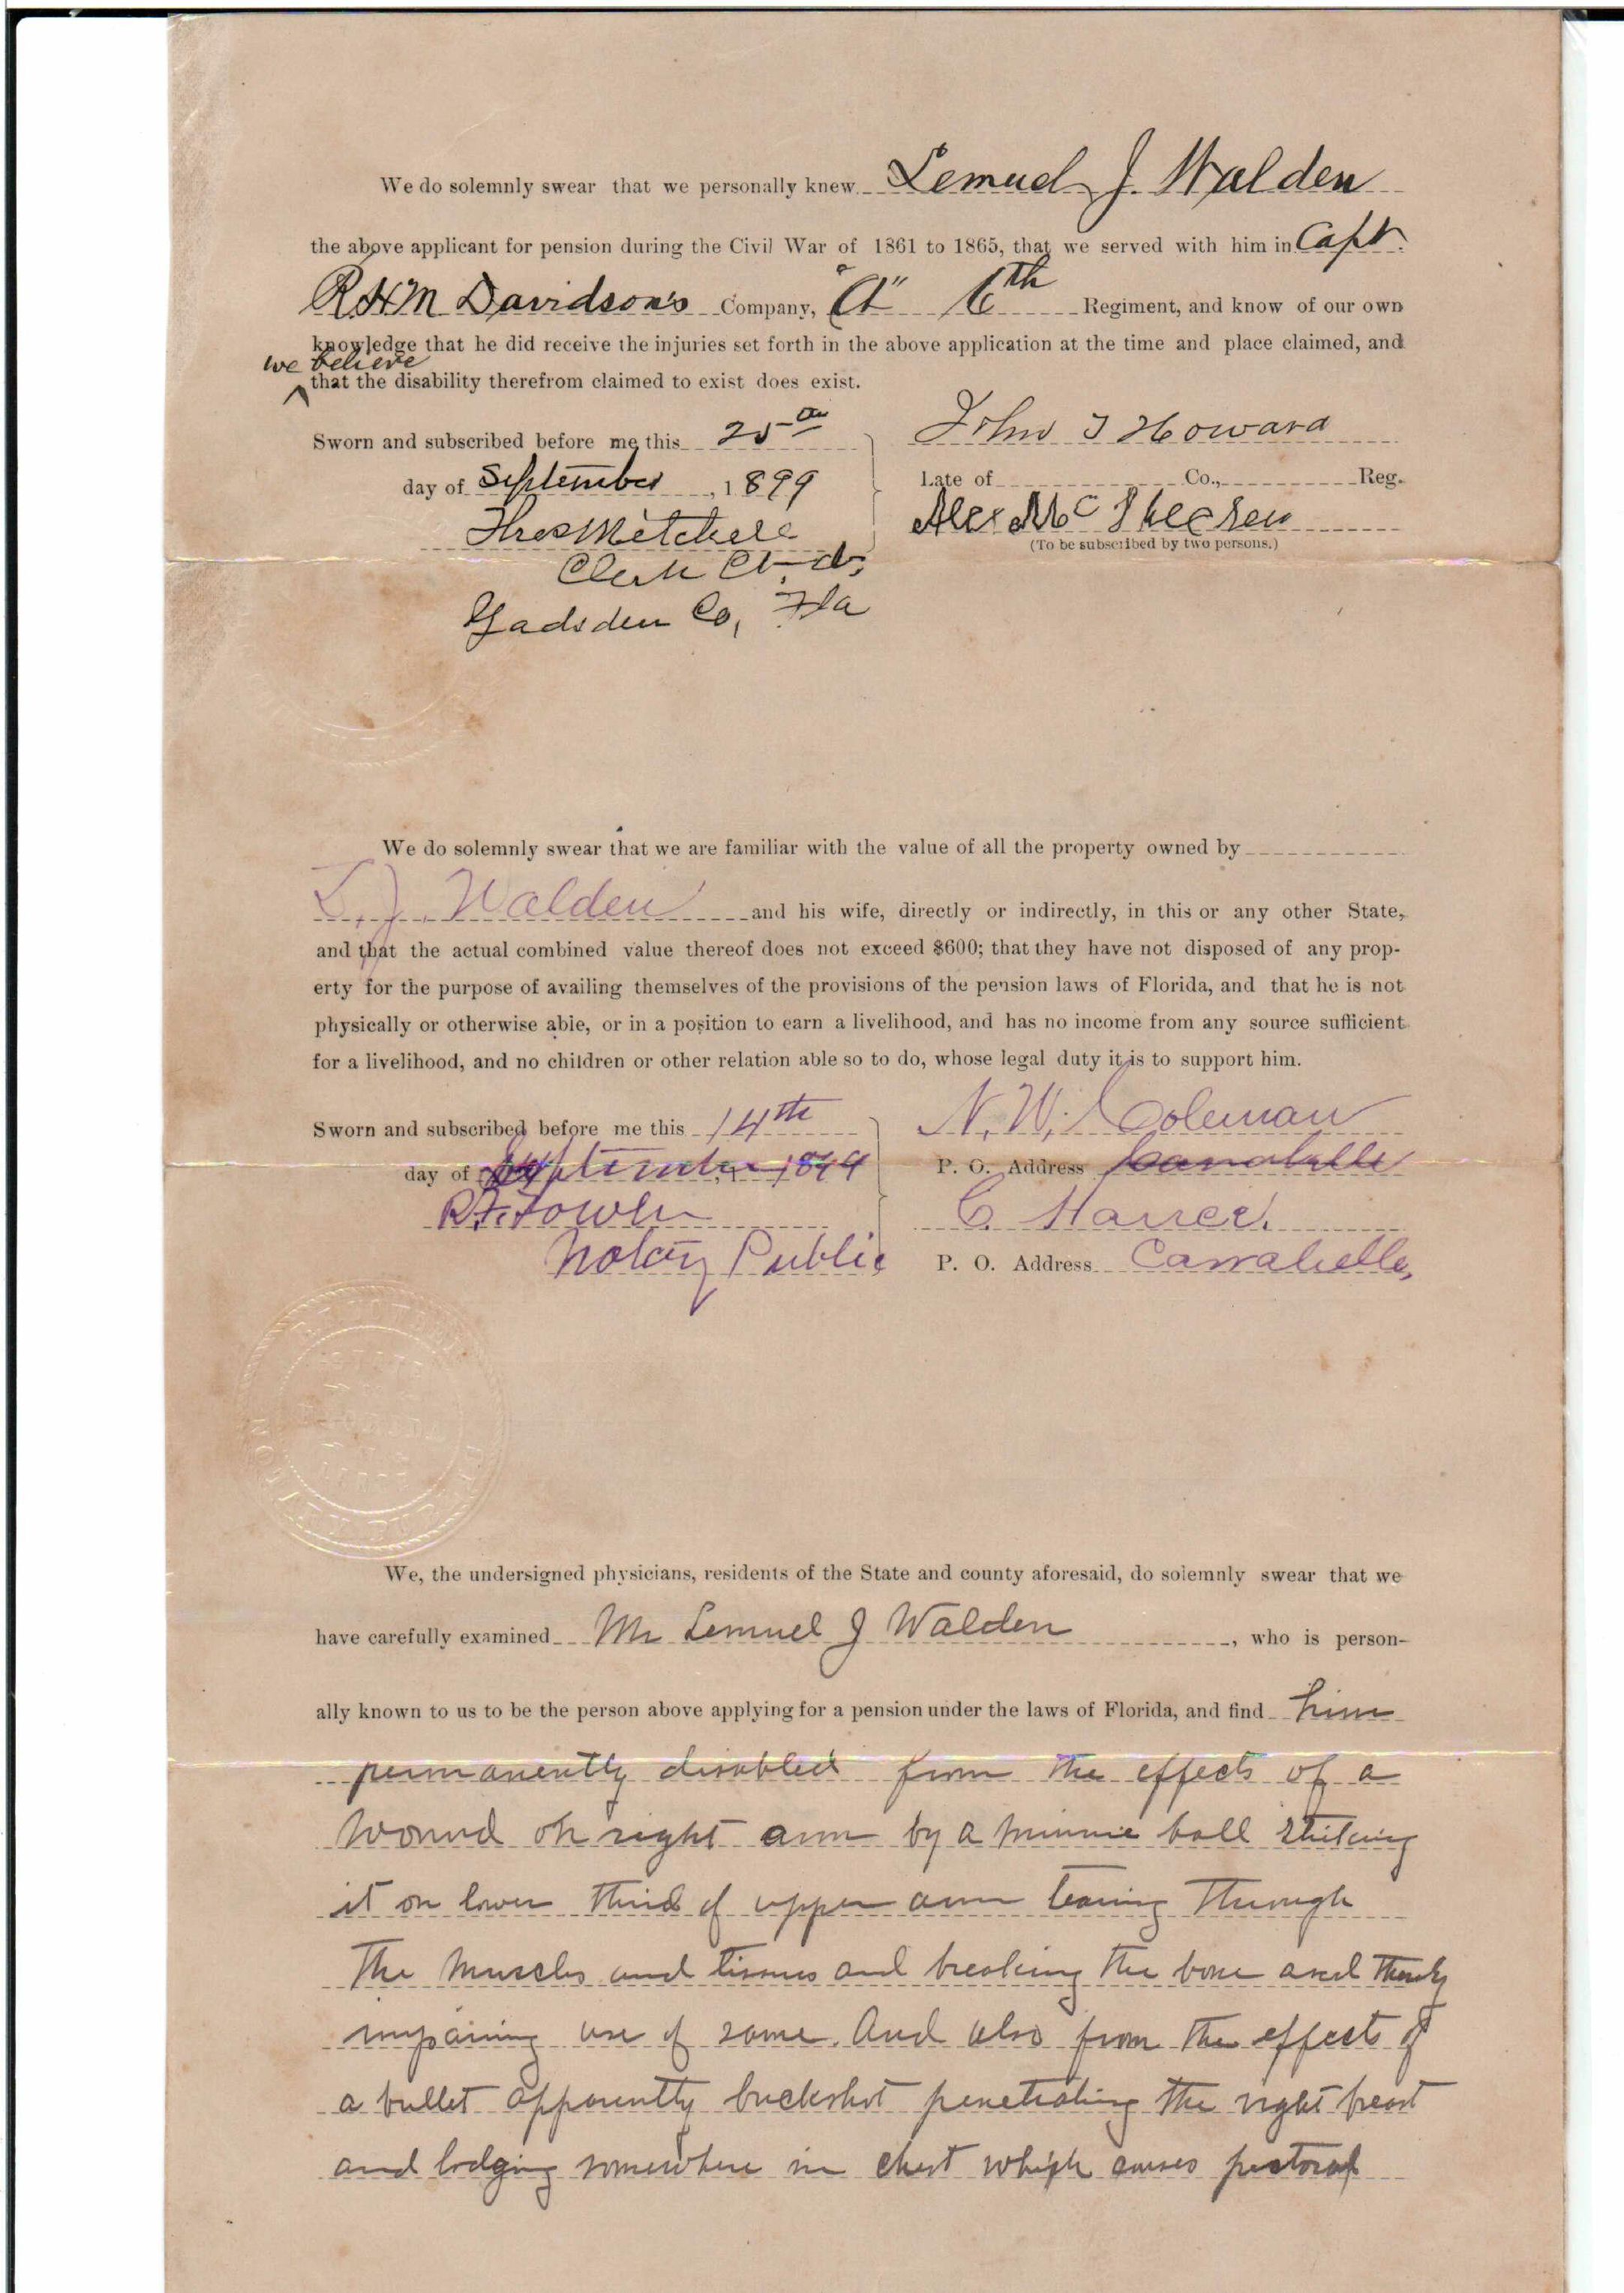 We do solemnly swear that we personally knew Lemuel J. Walden
the above applicant for pension during the Civil War of 1861 to 1865, that we served with him in Capt.
R H M Davidson's Company, "A" 6th Regiment, and know of our own
knowledge that he did receive the injuries set forth in the above application at the time and place claimed, and
we believe
that the disability therefrom claimed to exist does exist.
Sworn and subscribed before me this 25th
day of September, 1899
Thos Mitchell
Clerk Ct. Ct.
Gadsden Co, Fla
John T Howard
Late of Co., Reg.
Alex Mc
(To be subscribed by two persons.)
We do solemnly swear that we are familiar with the value of all the property owned by
L. J. Walden and his wife, directly or indirectly, in this or any other State,
and that the actual combined value thereof does not exceed $600; that they have not disposed of any prop-
erty for the purpose of availing themselves of the provisions of the pension laws of Florida, and that he is not
physically or otherwise able, or in a position to earn a livelihood, and has no income from any source sufficient
for a livelihood, and no children or other relation able so to do, whose legal duty it is to support him.
Sworn and subscribed before me this 14th
day of September, 1899
R. F. Fowler
Notary Public
N. W. Coleman
P. O. Address Carrabelle
C.
P. O. Address Carrabelle,
We, the undersigned physicians, residents of the State and county aforesaid, do solemnly swear that we
have carefully examined Mr Lemuel J Walden, who is person-
ally known to us to be the person above applying for a pension under the laws of Florida, and find him
permanently disabled from the effects of a
wound on right arm by a minnie ball striking
it on lower third of upper arm tearing through
the muscles and tissues and breaking the bone and thereby
impairing use of same. And also from the effects of
a bullet apparently buckshot penetrating the right breast
and lodging somewhere in chest which causes pectoral